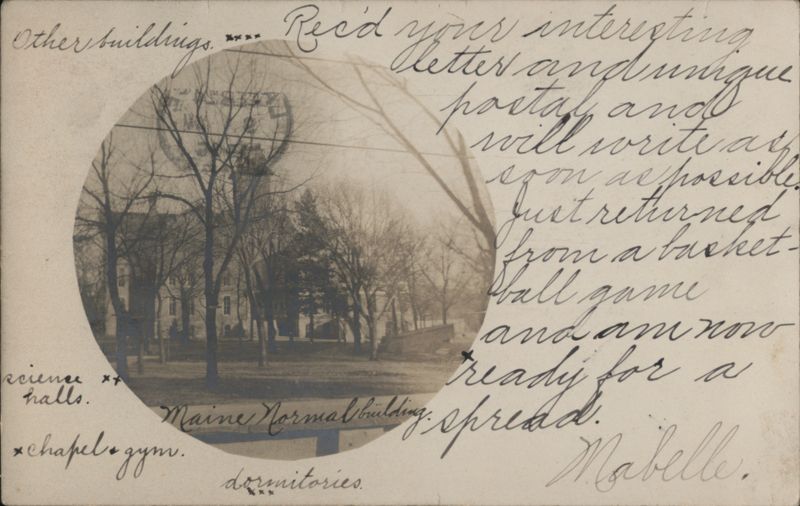 Other buildings. xxxx
Rec'd your interesting
letter and unique
postal and
will write as
soon as possible.
Just returned
from a basket-
ball game
and am now
x ready for a
spread.
Mabelle.
science xx
halls.
Maine Normal building.
x chapel + gym.
dormitories.
xxx